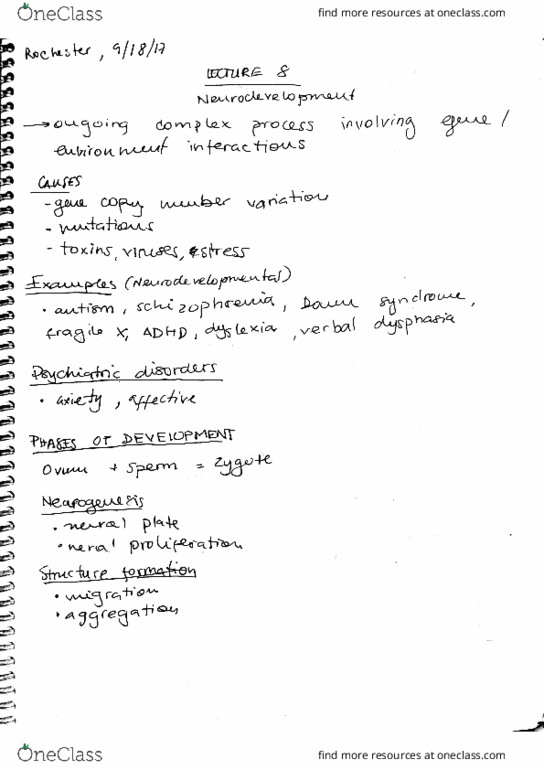 OneClass
find more resources at oneclass.com
Rochester, 9/18/17
LECTURE 8
Neurodevelopment
→ ongoing complex process involving gene/
environment interactions
CAUSES
- gene copy number variation
- mutations
- toxins, viruses, & stress
Examples (Neurodevelopmental)
• autism, schizophrenia, Down syndrome,
fragile X, ADHD, dyslexia, verbal dysphasia
Psychiatric disorders
• axiety, affective
PHASES OF DEVELOPMENT
Ovum + sperm = zygote
Neurogenesis
• neural plate
• neral proliferation
Structure formation
• migration
• aggregation
OneClass
find more resources at oneclass.com